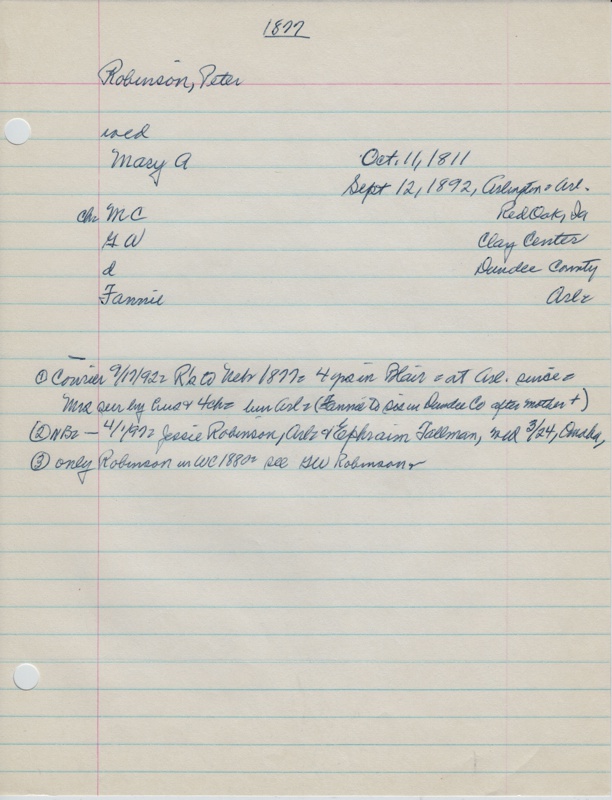 1877
Robinson, Peter
wed
Mary A Oct. 11, 1811
Sept 12, 1892, Arlington = Arl.
ch: MC Red Oak, Ia
GW Clay Center
d Dundee County
Fannie Arl=
① Courier 9/17/92= R's to Nebr 1877= 4 yrs in Blair = at Arl. since =
Mrs sur by hus & 4 ch= bur Arl = (Fannie to sis in Dundee Co after mother +)
② NB= — 4/1/97= Jessie Robinson, Arl= & Ephraim Tallman, wed 3/24, Omaha,
③ only Robinson in WC 1880= see GW Robinson